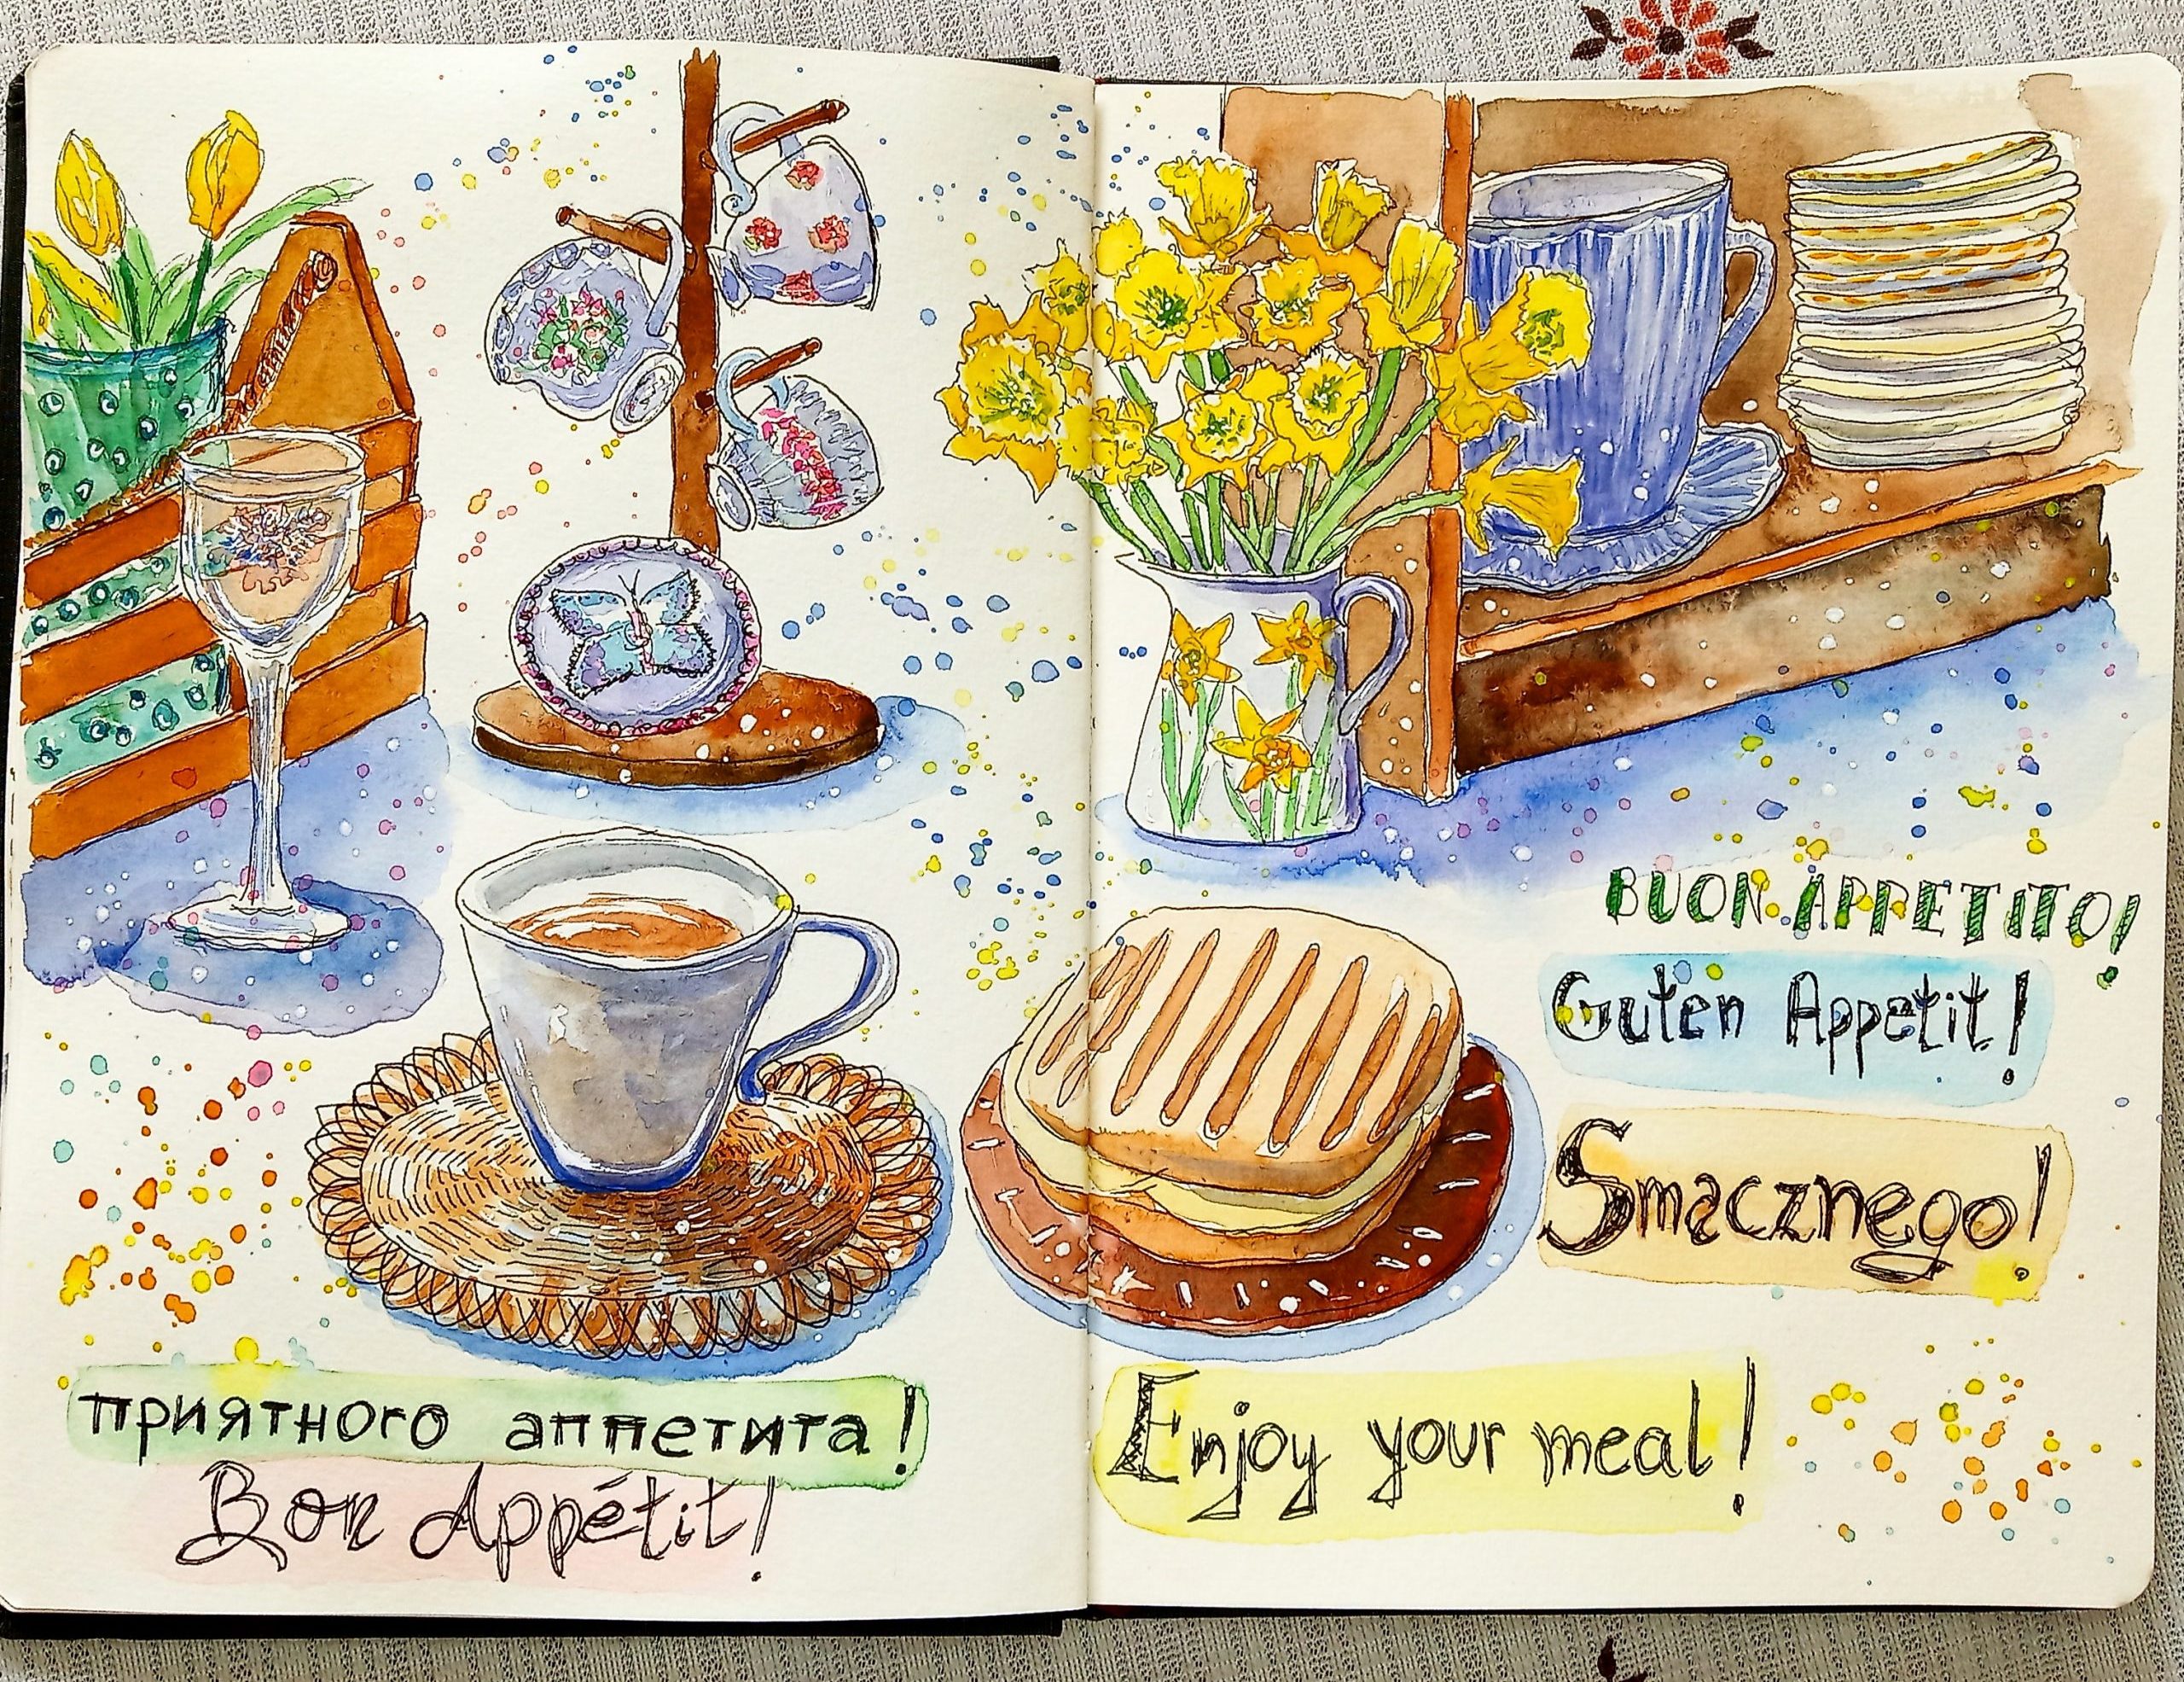 приятного аппетита!
Bon Appétit!
BUON APPETITO!
Guten Appetit!
Smacznego!
Enjoy your meal!